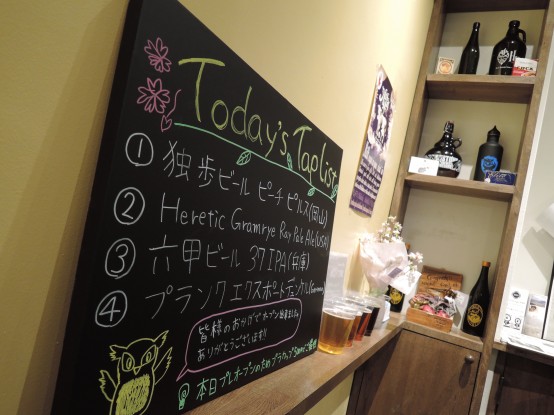 Today's Tap list
① 独歩ビール ピーチ ピルス(岡山)
② Heretic Gramrye Ray Pale Ale(USA)
③ 六甲ビール 37 IPA(兵庫)
④ プランク エクスポート
皆様のおかげでオープン出来ました
ありがとうございます!!
本日プレオープンのため